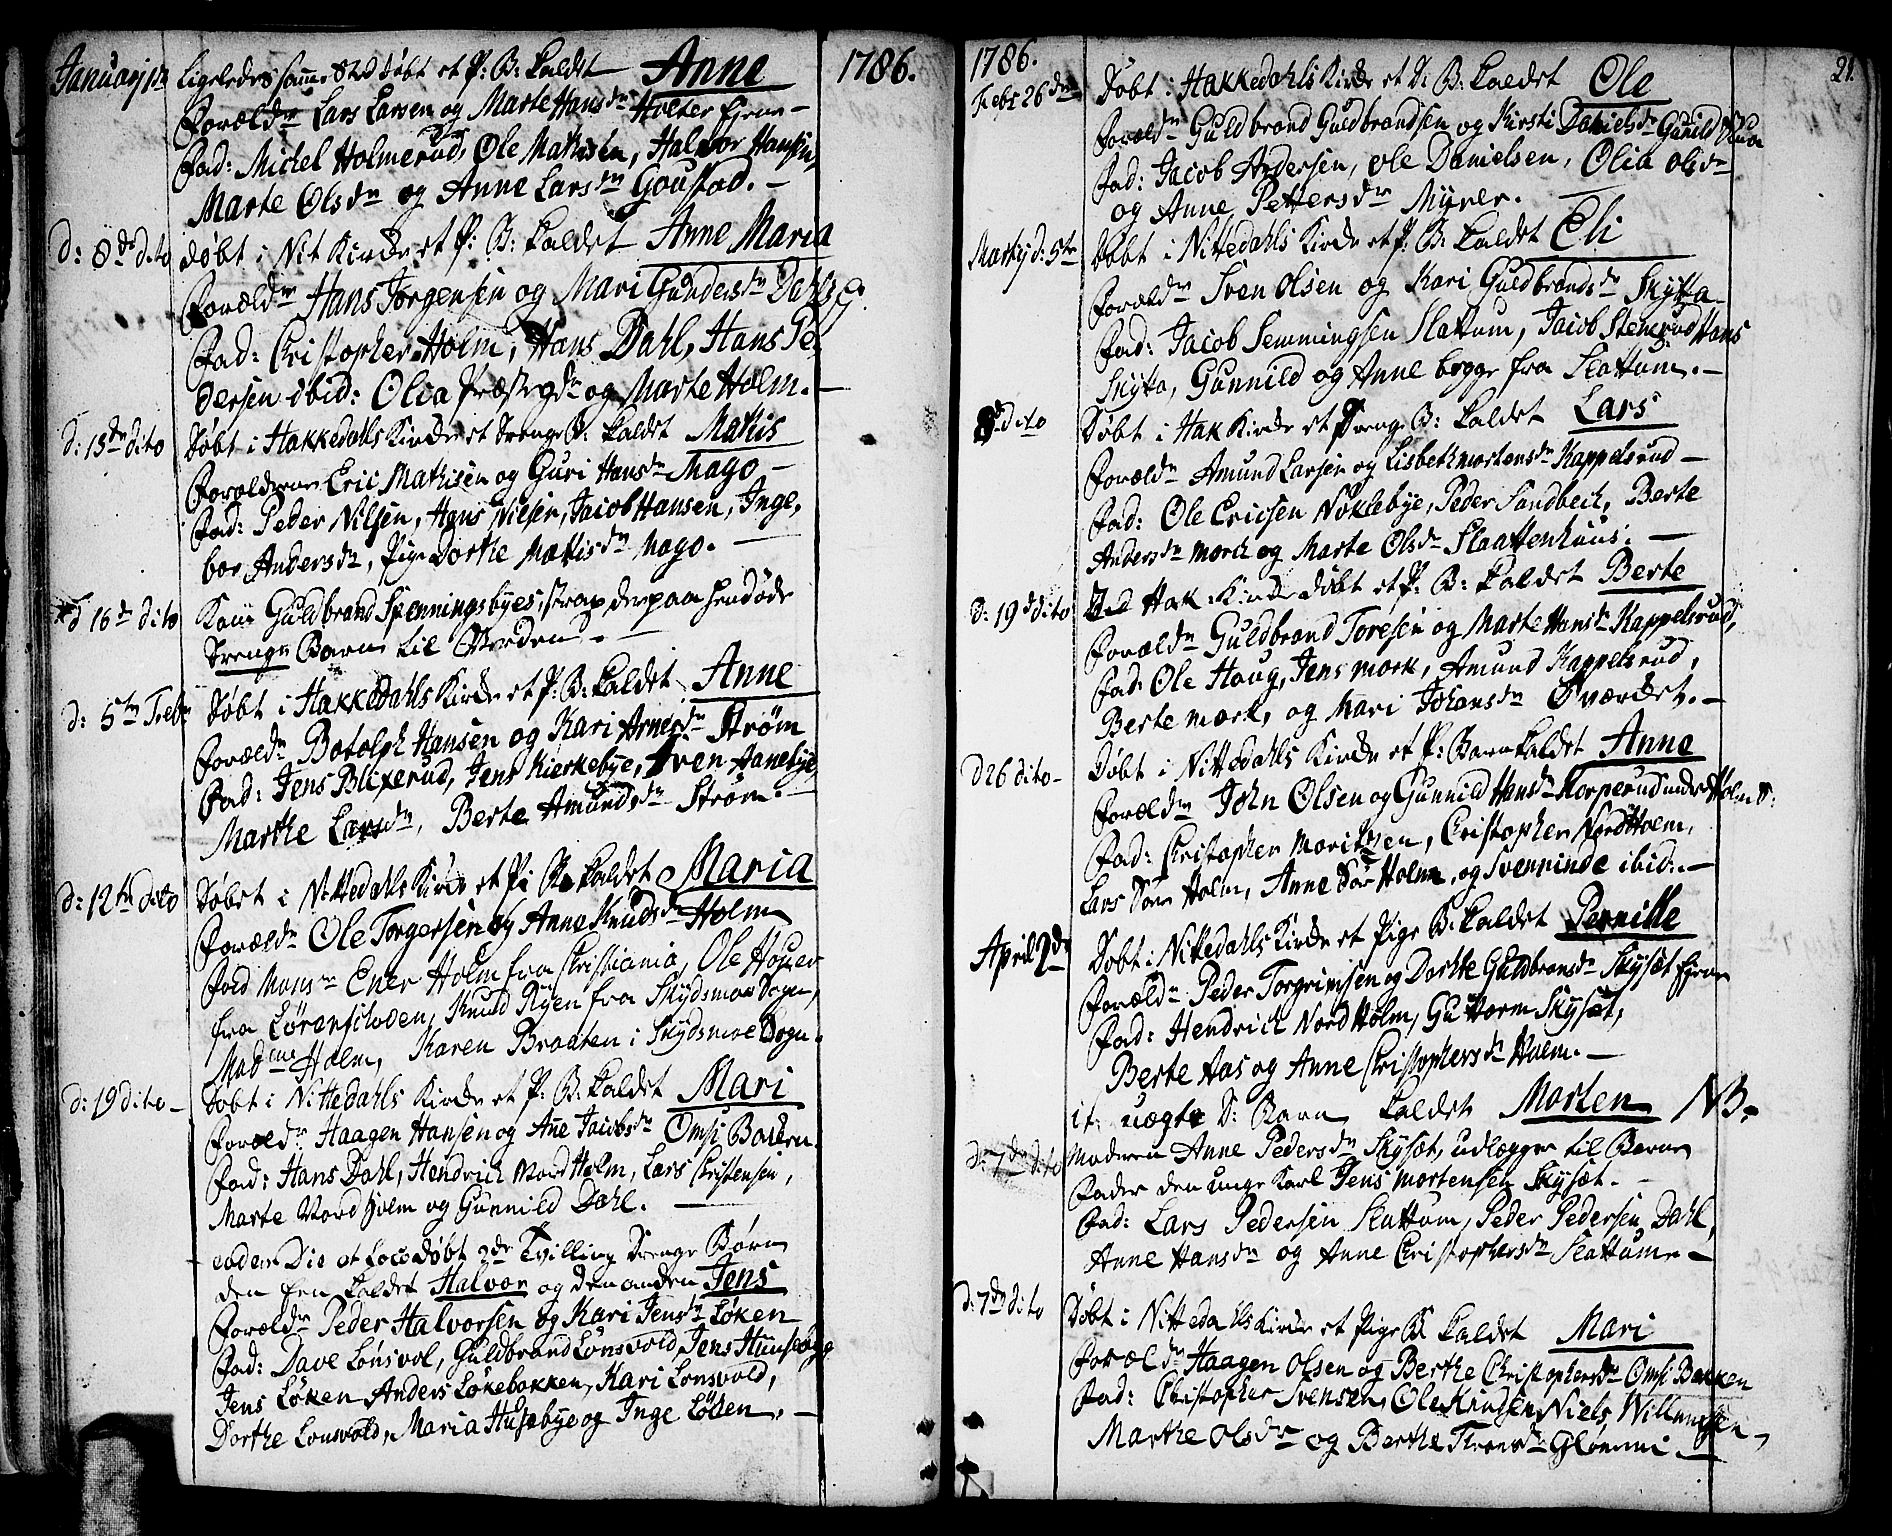 1786.
Januarj 1te Ligeledes samme Sted døbt et P: B: kaldet Anne
Foræld.r Lars Larsen og Marte Hansd.r Holter Ejene
Fad: Michel Holmerud, Ole Mathisen, Halvor Hansen,
Marte Olsd.r og Anne Larsd.r Goustad. –
d: 8de dito døbt i Nit Kirke et P: B: kaldet Anne Maria
Foræld.r Hans Jørgensen og Mari Gundersd.r Dahls
Fad: Christopher Holm, Hans Dahl, Hans Pe-
dersen ibid: Olia og Marte Holm. –
d: 15de dito Døbt i Hakkedals Kirke et Drenge B: kaldet Mathis
Forældrene Eric Mathisen og Guri Hansd.r Mago –
Fad: Peder Nilsen, Hans Nilsen, Jacob Hansen, Inge,
bor Andersd.r, Pige Dorthe Mathisd.r Mago. –
d 16de dito Kom Guldbrand Spenningsbyes, strax derpaa hendøde
Drenge Barn til Verden. –
d: 5te Febr Døbt i Hakkedahls Kirke et P: B: kaldet Anne
Foræld.r Botolph Hansen og Kari Arnesd.r Strøm
Fad: Jens Blixerud, Jens Kierkebye, Sven Aanebye
Marthe Larsd.r, Berte Amundsd.r Strøm. –
d: 12te dito Døbt i Nittedahls Kirke et P: B: kaldet Maria
Foræld.r Ole Torgersen og Anne Knudsd.r Holm
Fad Mons.r Ener Holm fra Christiania, Ole
fra Lørenschoven, Knud Ryen fra Skydsmoe Sogn,
Madame Holm, Karen Braaten i Skydsmoe Sogn.
d: 19 dito – Døbt i Nittedahls Kirke et P: B: kaldet Mari
Foræld.r Haagen Hansen og Anne Jacobsd.r Omsi Bakken
Fad: Hans Dahl, Hendrich Nord Holm, Lars Christensen,
Marte Nord Holm og Gunnild Dahl. –
eodem Die et Loco døbt 2de Tvilling Drenge Børn
den Een kaldet Halvor og den anden Jens
Foræld.r Peder Halvorsen og Kari Jensd.r Løken
Fad: Dave Lønsvol, Guldbrand Lønsvold, Jens
Jens Løken Anders Løkebakken, Kari Lønsvold,
Dorthe Lonsvold, Maria Husebye og Inge Løken. –
1786.
21.
Febr 26de Døbt i Hakkedahls Kirke et D: B: kaldet Ole
Foræld.r Guldbrand Guldbrandsen og Kirsti Danielsd.r
Fad: Jacob Andersen, Ole Danielsen, Olia Olsd.r
og Anne Pettersd.r Myrer.
Martij d: 5te Døbt i Nittedahls Kirke et P: B: kaldet Eli
Foræld.r Sven Olsen og Kari Guldbrandsd.r Skytta
Fad: Jacob Semmingsen Slattum, Jacob Stenerud Hans
Skytta, Gunnild og Anne begge fra Slattum. –
dito Døbt i Hak Kirke et Drenge B: kaldet Lars
Foræld.r Amund Larsen og Lisbeth Mortensd.r Kappelsrud –
Fad: Ole Ericsen Nøklebye, Peder Sandbech, Berte
Andersd.r Morch og Marte Olsd.r Slaattenhuus. –
d: 19de dito Ved Hak Kirke døbt et P: B: kaldet Berte
Foræld.r Guldbrand Toresen og Marte Hansd.r Kappelsrud,
Fad Ole Houg, Jens mork, Amund Kappelsrud,
Berte mork, og Mari Johansd.r Øværdet. –
d 26 dito – Døbt i Nittedahls Kirke et P: Barn kaldet Anne
Foræld.r John Olsen og Gunnild Hansd.r Korperud under Holm
Fad: Christopher Moritzen, Christopher Nord Holm,
Lars Sør Holm, Anne Sør Holm, og Svenninde ibid. –
April 2de Døbt i Nittedahls Kirke et Pige B: kaldet Pernille
Foræld.r Peder Torgrimsen og Dorthe Guldbransd.r Skyset Ejene
Fad: Hendrich Nord Holm, Guttorm Skyset,
Berte Aas og Anne Christophersd.r Holm. –
it: uægte D: Barn kaldet Morten NB.
d: 7de dito Moderen Anne Pedersd.r Skyset, udlægger til Barne
Fader den unge Karl Jens Mortensen Skyset. –
Fad: Lars Pedersen Slattum, Peder Pedersen Dahl,
Anne Hansd.r og Anne Christophersd.r Slattum –
d: 7de dito Døbt i Nittedahls Kirke et Pige B kaldet Mari
Foræld.r Haagen Olsen og Berthe Christophersd.r Omsi Bakken
Fad: Christopher Svensen, Ole Knudsen, Niels Willumsen,
Marthe Olsd.r og Berthe